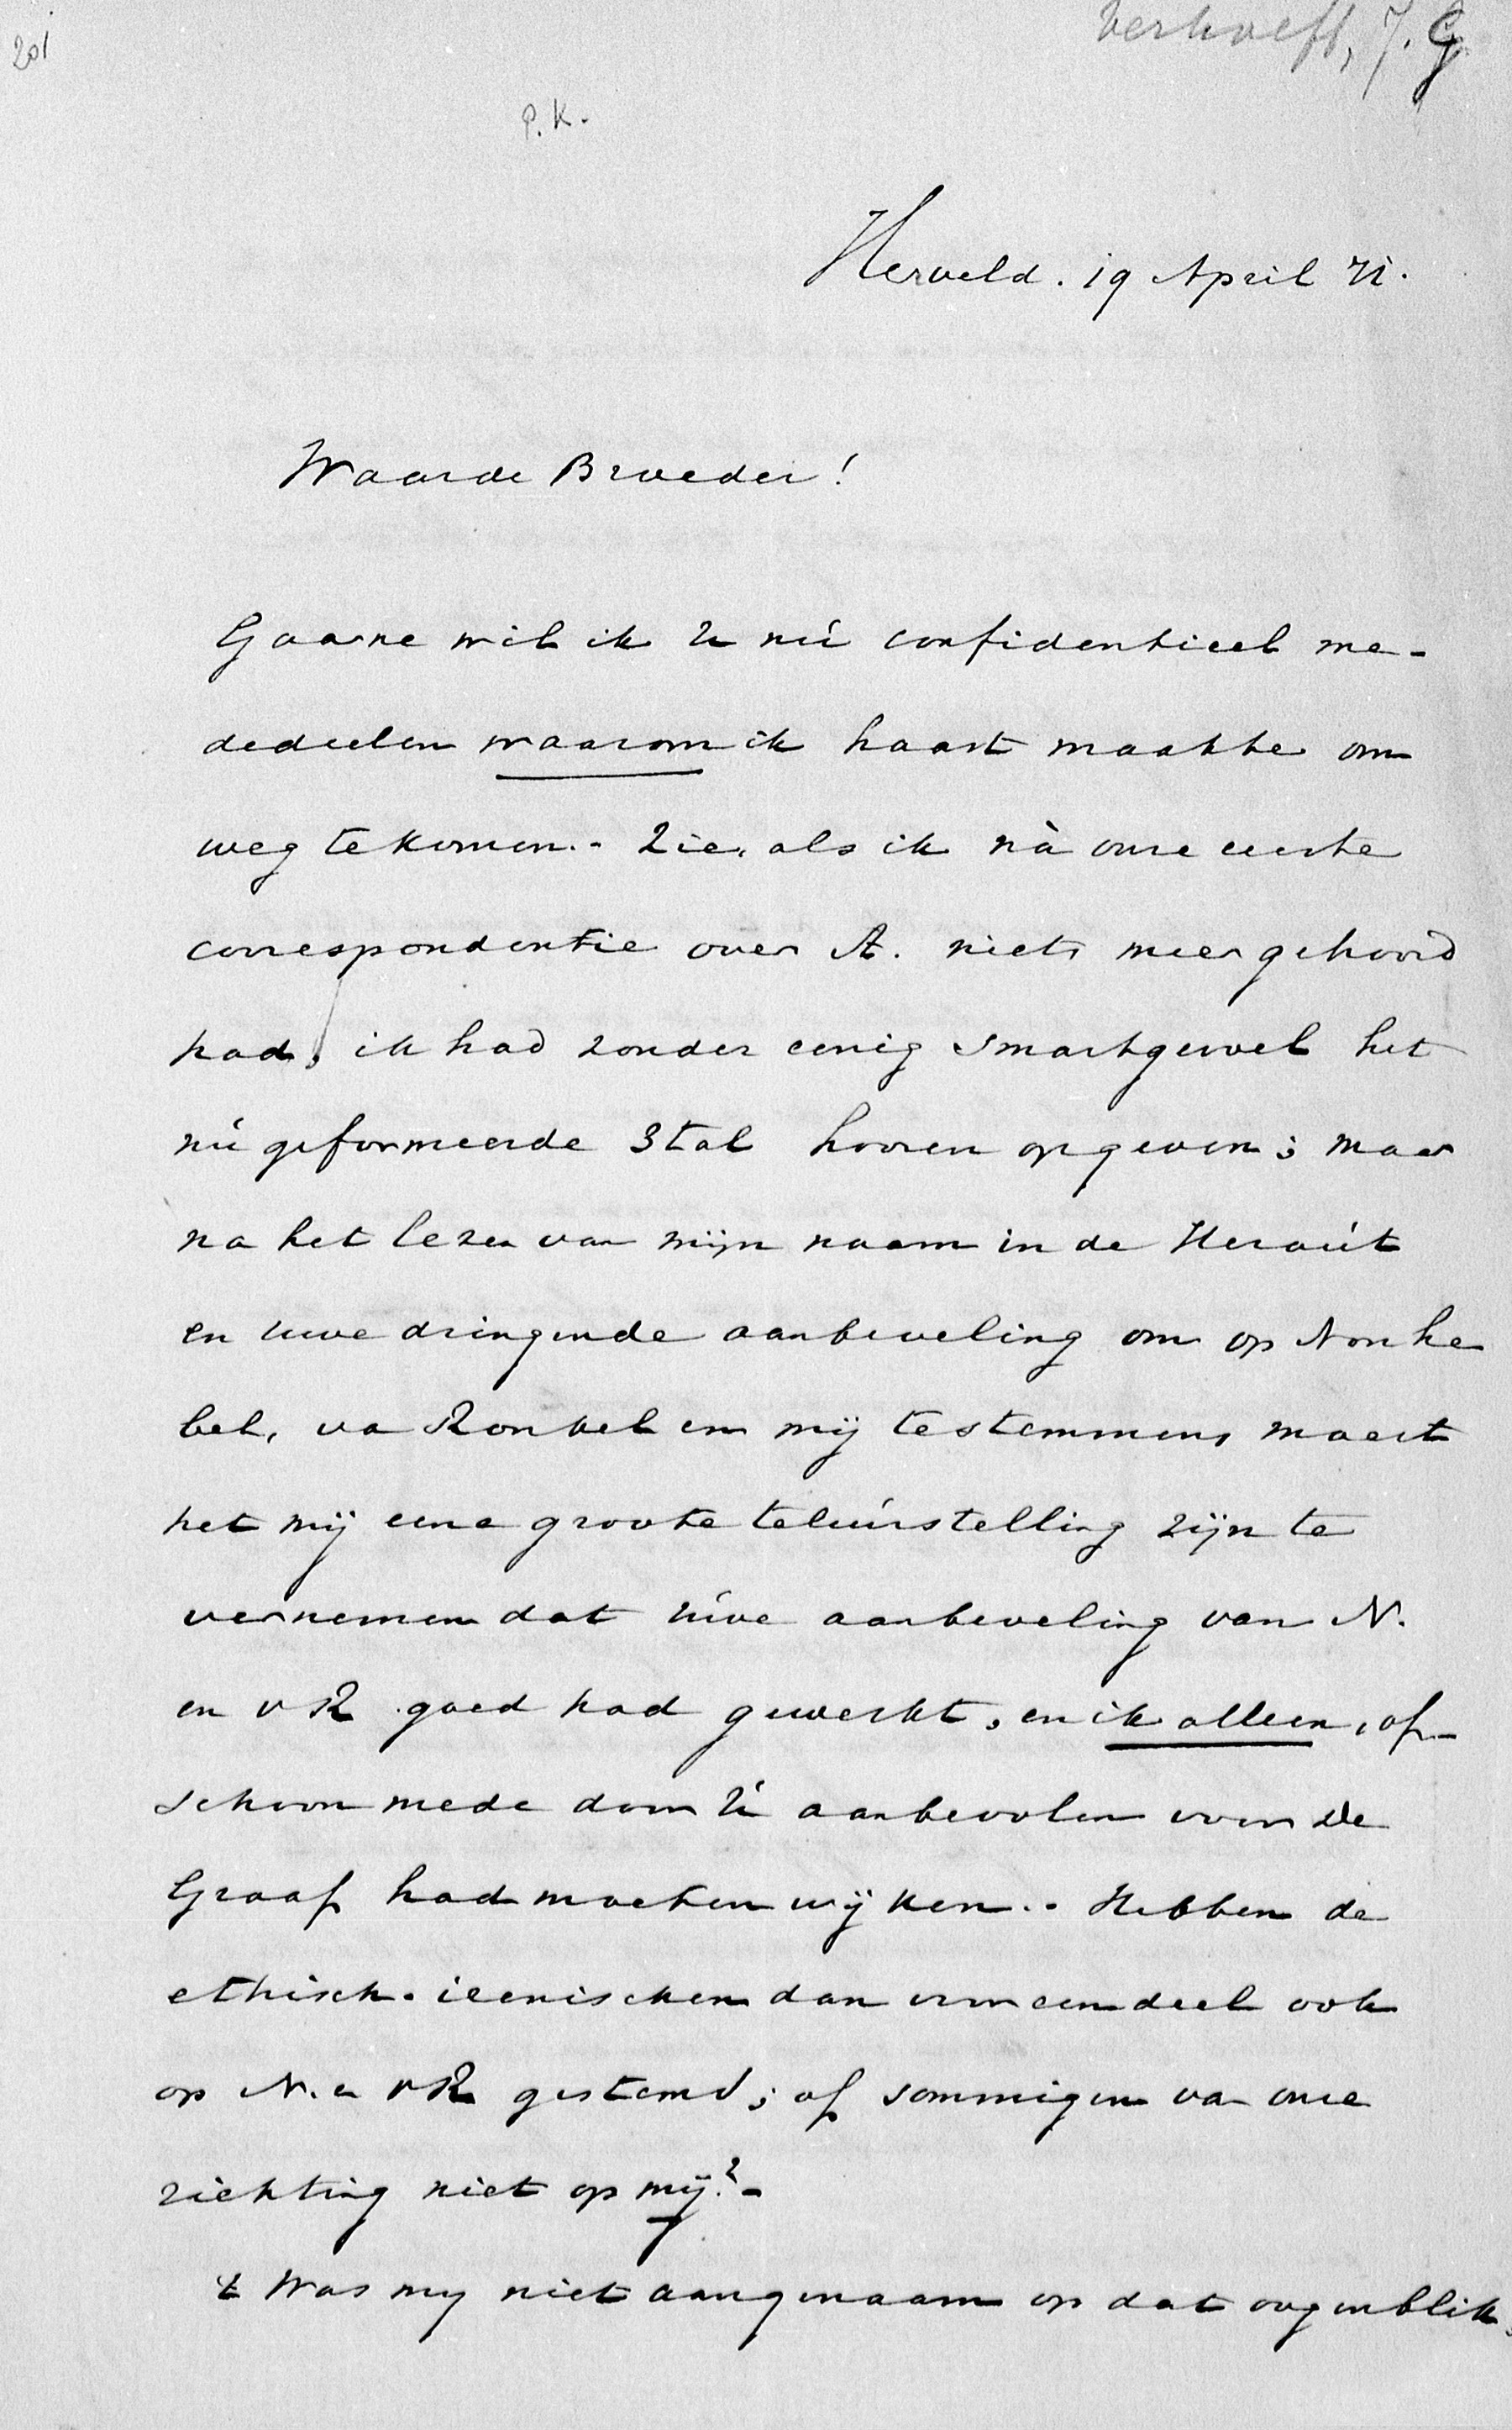 201
Verhoeff, J. G
P.K.
Herveld. 19 April 71.
Waarde Broeder!
Gaarne wil ik U nú confidentieel me-
dedeelen waarom ik haast maakte om
weg te komen.- Zie, als ik nà onze eerste
correspondentie over A. niets meer gehoord
had, ik had zonder eenig smartgevoel het
nú geformeerde 3tal hooren opgeven; maar
na het lezen van mijn naam in de Heraút
en uwe dringende aanbeveling om op Nonhe
bel, va Ronkel en mij te stemmen, moest
het mij eene groote teleúrstelling zijn te
vernemen dat úwe aanbeveling van N.
en v R goed had gewerkt, en ik alleen, of-
schoon mede door Ú aanbevolen voor de
Graaf had moeten wijken.- Hebben de
ethisch-irenischen dan voor een deel ook
op N. en v R gestemd; of sommigen van onze
richting niet op mij?-
't Was mij niet aangenaam op dat oogenblik,